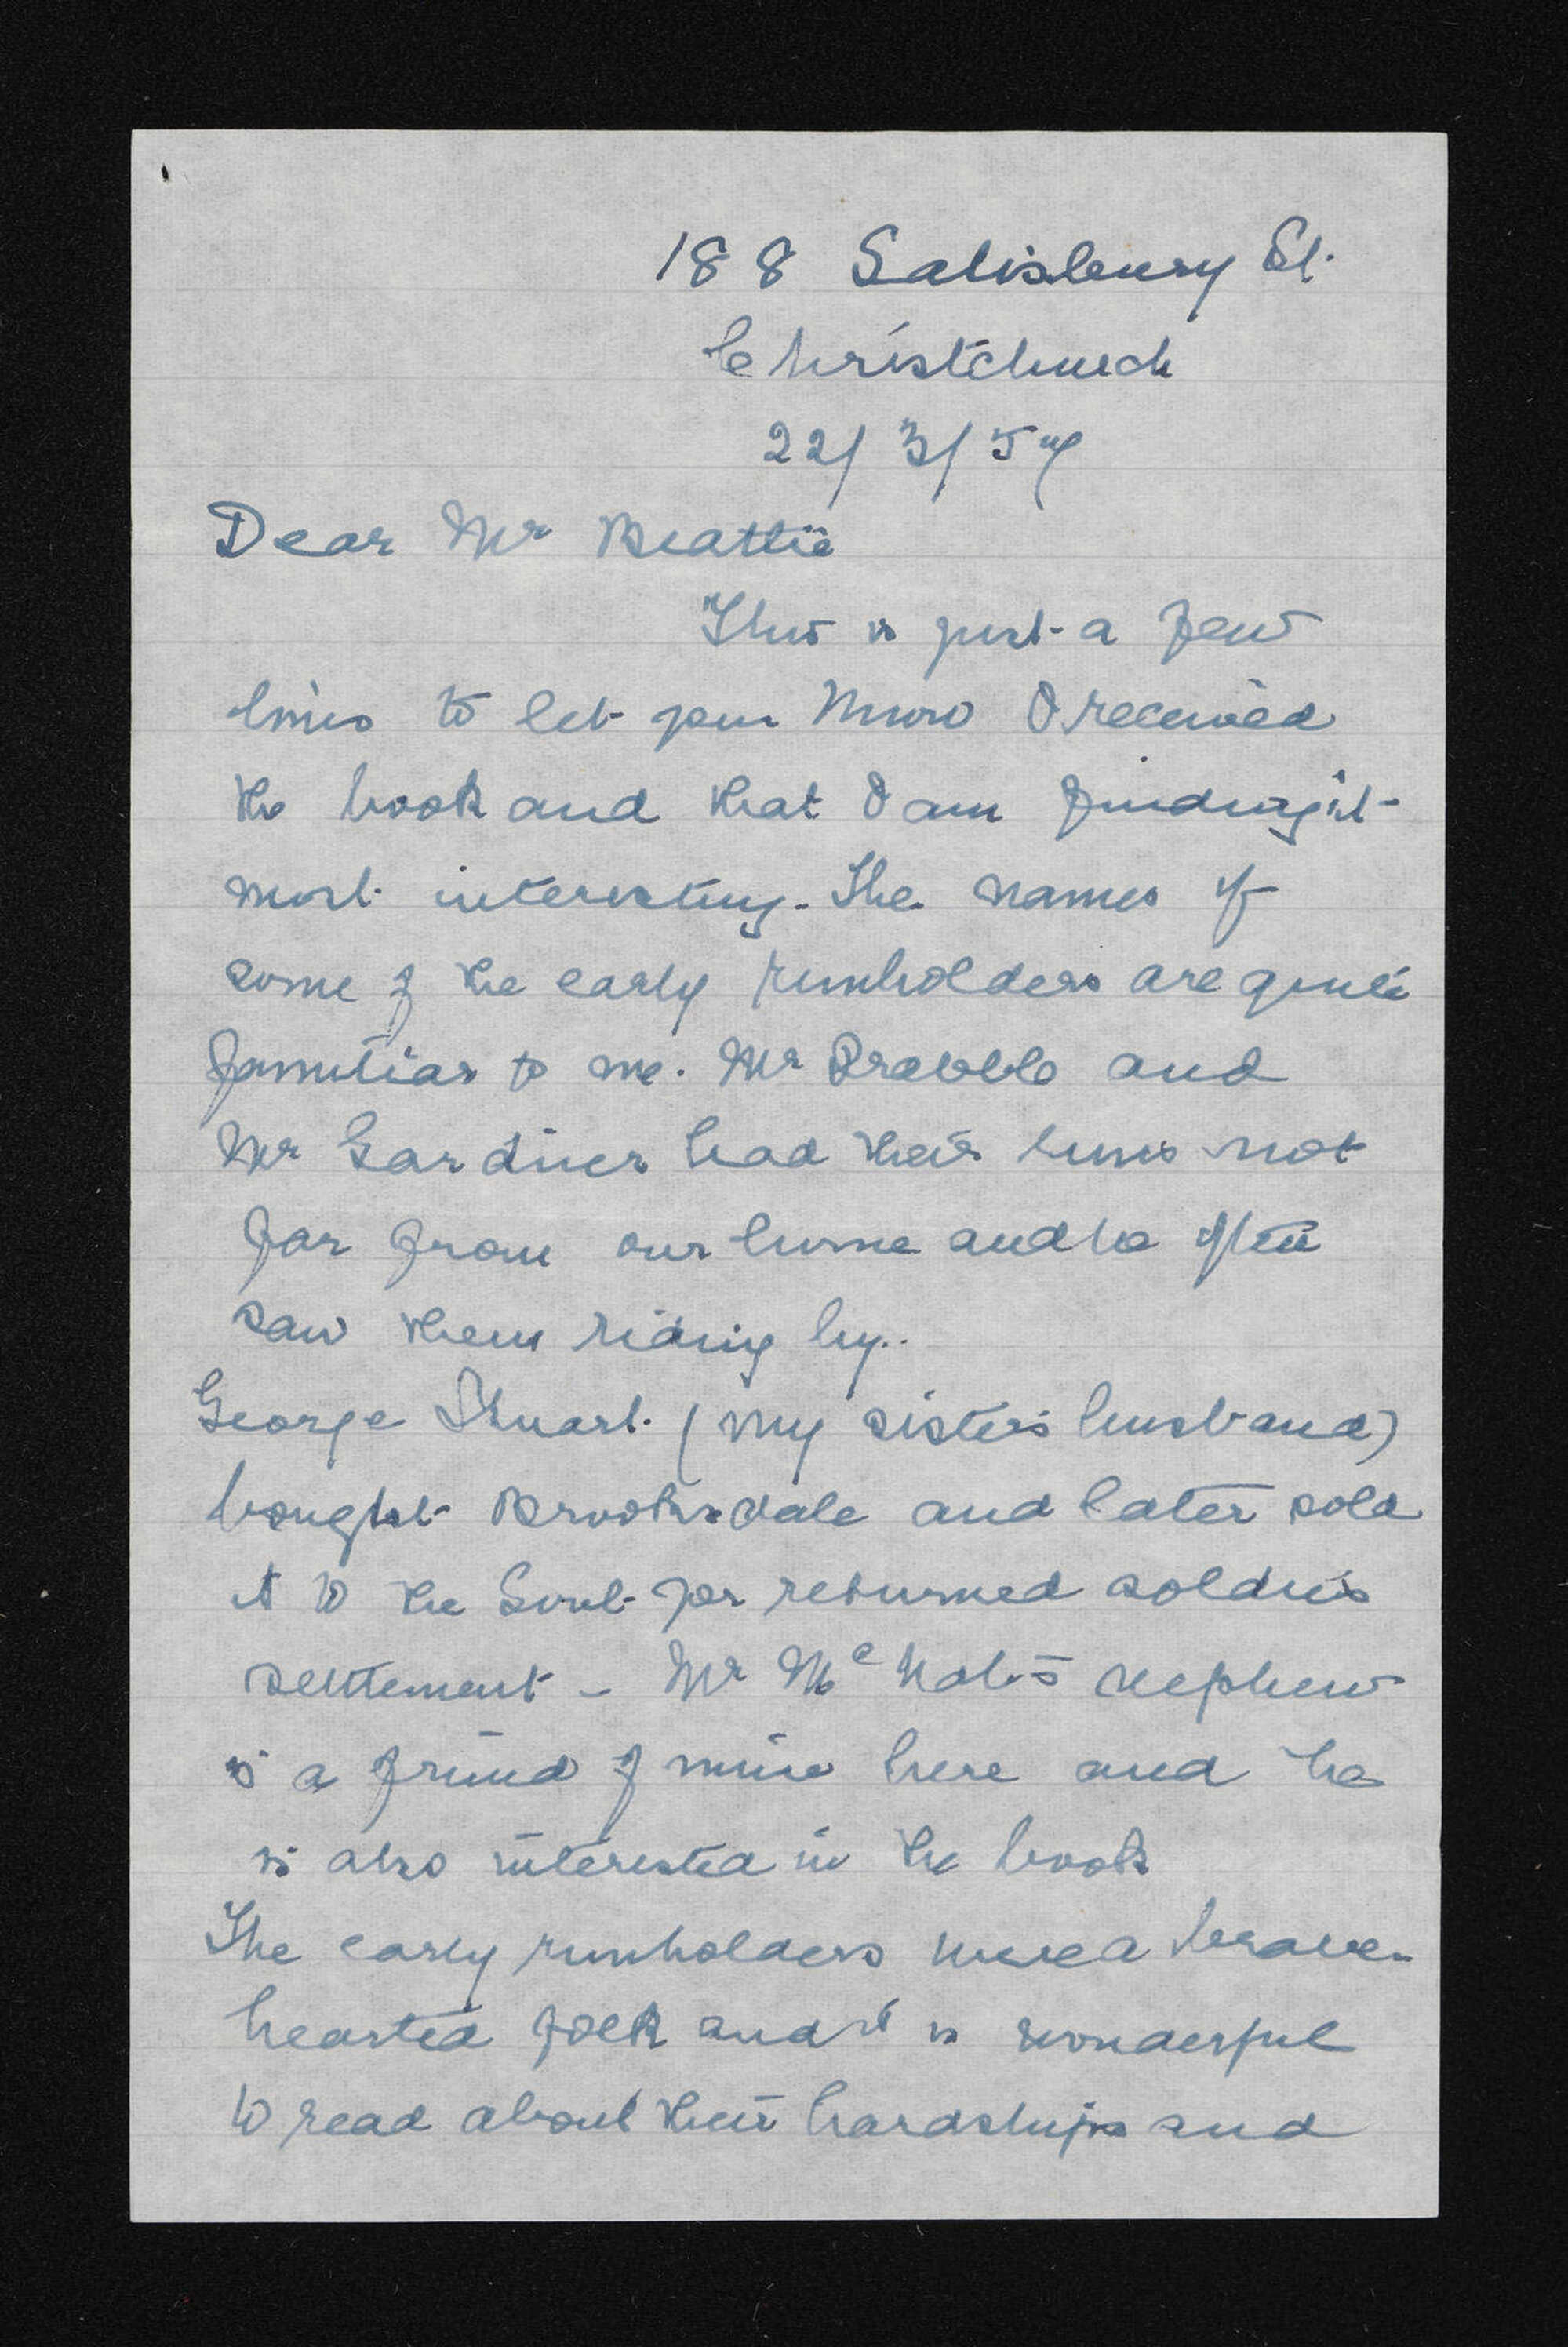 188 Salisbury St.
Christchurch
22/3/54
Dear Mr Beattie
This is just a few
lines to let you know I received
the book and that I am finding it
most interesting. The names of
some of the early runholders are quite
familiar to me. Mr Drabble and
Mr Gardiner had their runs not
far from our home and we often
saw them riding by..
George Stuart (my sister's husband)
bought Brooksdale and later sold
it to the Govt for returned soldiers
settlement - Mr McNab's nephew
is a friend of mine here and he
is also interested in the book
The early runholders were a brave-
hearted folk and it is wonderful
to read about their hardships and